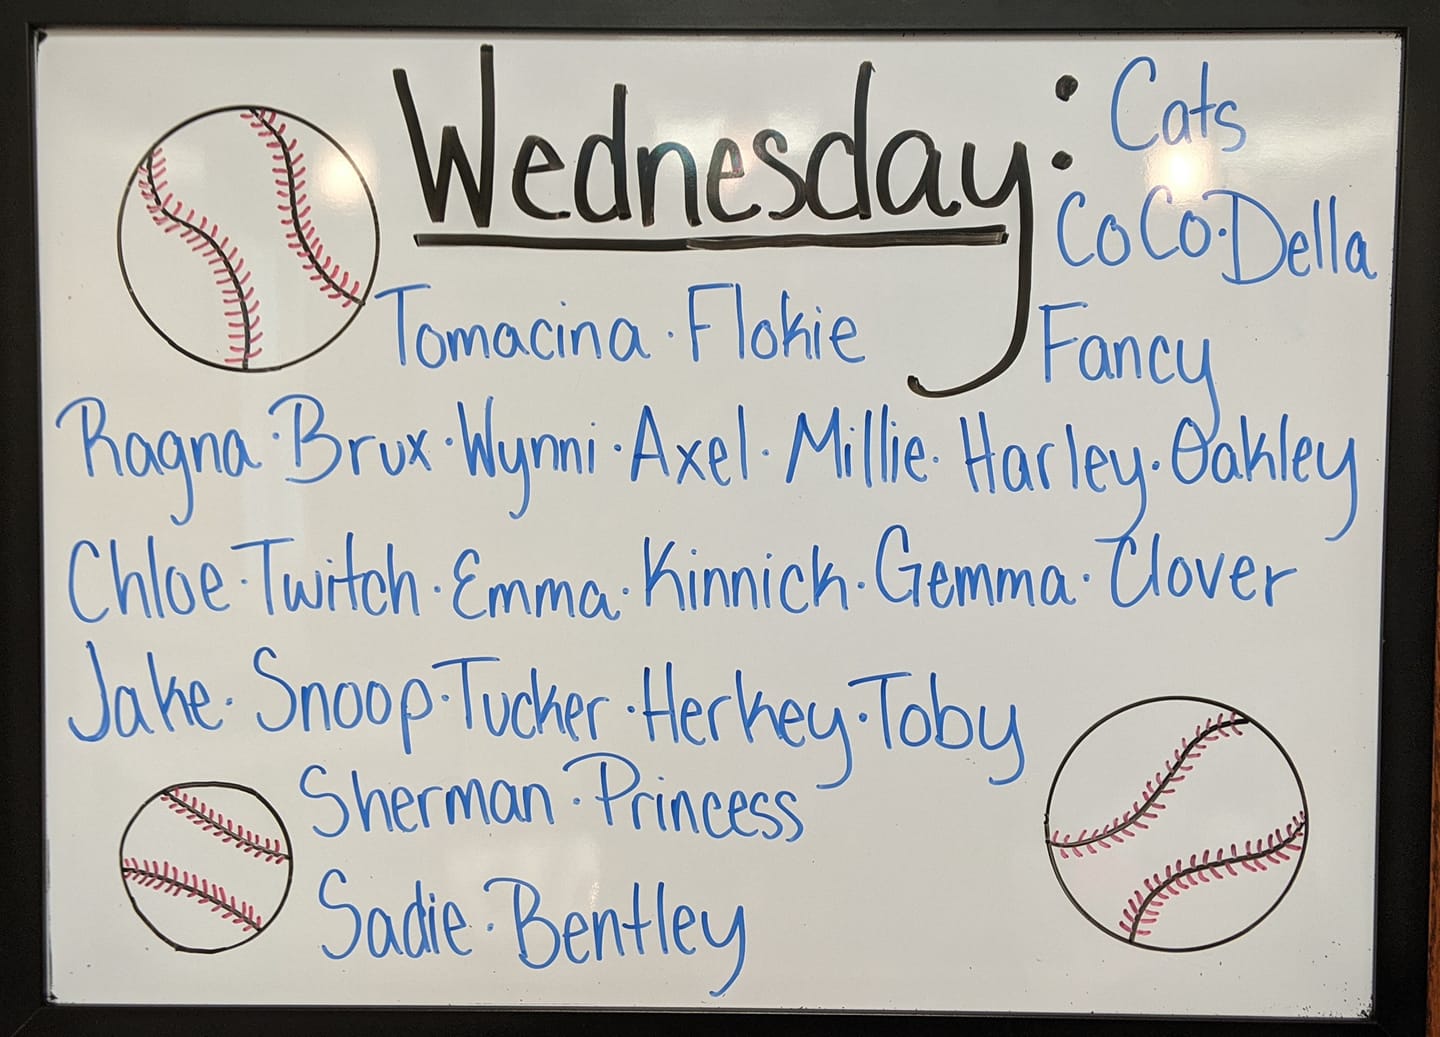 Wednesday:
Cats
CoCo·Della
Tomacina·Flokie
Fancy
Ragna·Brux·Wynni·Axel·Millie·Harley·Oakley
Chloe·Twitch·Emma·Kinnick·Gemma·Clover
Jake·Snoop·Tucker·Herkey·Toby
Sherman·Princess
Sadie·Bentley